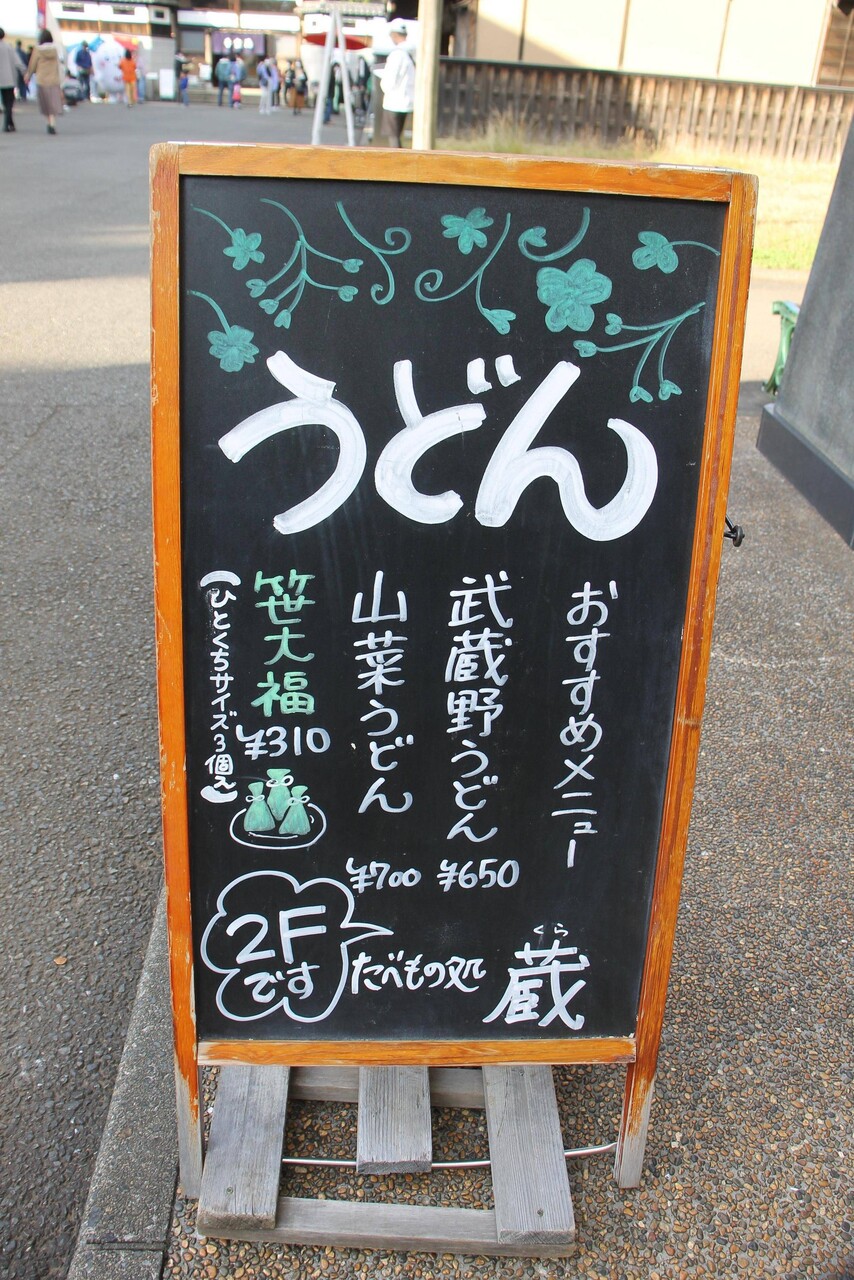 うどん
おすすめメニュー
武蔵野うどん
¥650
山菜うどん
¥700
笹大福
¥310
(ひとくちサイズ3個入)
くら
蔵
たべもの処
2F
です